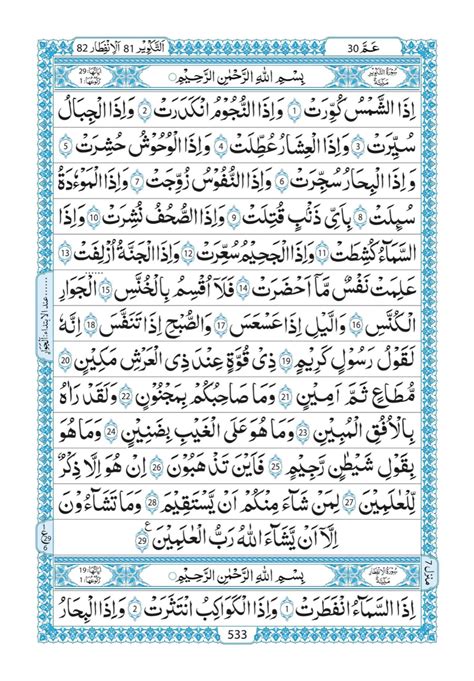 عَمَّ 30
اَلتَّكْوِيْر 81 اَلْاِنْفِطَار 82
سُوْرَةُ التَّكْوِيْرِ مَكِّيَّةٌ
بِسْمِ اللّٰهِ الرَّحْمٰنِ الرَّحِيْمِ
اٰيَاتُهَا: 29 رُكُوْعُهَا: 1
اِذَا الشَّمْسُ كُوِّرَتْ 1 وَاِذَا النُّجُوْمُ انْكَدَرَتْ 2 وَاِذَا الْجِبَالُ
سُيِّرَتْ 3 وَاِذَا الْعِشَارُ عُطِّلَتْ 4 وَاِذَا الْوُحُوْشُ حُشِرَتْ 5
وَاِذَا الْبِحَارُ سُجِّرَتْ 6 وَاِذَا النُّفُوْسُ زُوِّجَتْ 7 وَاِذَا الْمَوْءٗدَةُ
سُىِٕلَتْ 8 بِاَىِّ ذَنْۢبٍ قُتِلَتْ 9 وَاِذَا الصُّحُفُ نُشِرَتْ 10 وَاِذَا
السَّمَآءُ كُشِطَتْ 11 وَاِذَا الْجَحِيْمُ سُعِّرَتْ 12 وَاِذَا الْجَنَّةُ اُزْلِفَتْ 13
عَلِمَتْ نَفْسٌ مَّاۤ اَحْضَرَتْ 14 فَلَاۤ اُقْسِمُ بِالْخُنَّسِ 15 الْجَوَارِ
الْكُنَّسِ 16 وَالَّيْلِ اِذَا عَسْعَسَ 17 وَالصُّبْحِ اِذَا تَنَفَّسَ 18 اِنَّهٗ
لَقَوْلُ رَسُوْلٍ كَرِيْمٍ 19 ذِىْ قُوَّةٍ عِنْدَ ذِى الْعَرْشِ مَكِيْنٍ 20
مُّطَاعٍ ثَمَّ اَمِيْنٍ 21 وَمَا صَاحِبُكُمْ بِمَجْنُوْنٍ 22 وَلَقَدْ رَاٰهُ
بِالْاُفُقِ الْمُبِيْنِ 23 وَمَا هُوَ عَلَى الْغَيْبِ بِضَنِيْنٍ 24 وَمَا هُوَ
بِقَوْلِ شَيْطٰنٍ رَّجِيْمٍ 25 فَاَيْنَ تَذْهَبُوْنَ 26 اِنْ هُوَ اِلَّا ذِكْرٌ
لِّلْعٰلَمِيْنَ 27 لِمَنْ شَآءَ مِنْكُمْ اَنْ يَّسْتَقِيْمَ 28 وَمَا تَشَآءُوْنَ
اِلَّاۤ اَنْ يَّشَآءَ اللّٰهُ رَبُّ الْعٰلَمِيْنَ 29 ع
سُوْرَةُ الْاِنْفِطَارِ مَكِّيَّةٌ
بِسْمِ اللّٰهِ الرَّحْمٰنِ الرَّحِيْمِ
اٰيَاتُهَا: 19 رُكُوْعُهَا: 1
اِذَا السَّمَآءُ انْفَطَرَتْ 1 وَاِذَا الْكَوَاكِبُ انْتَثَرَتْ 2 وَاِذَا الْبِحَارُ
عند الابتداء: اَلْجَوَارِ
منزل 7
533